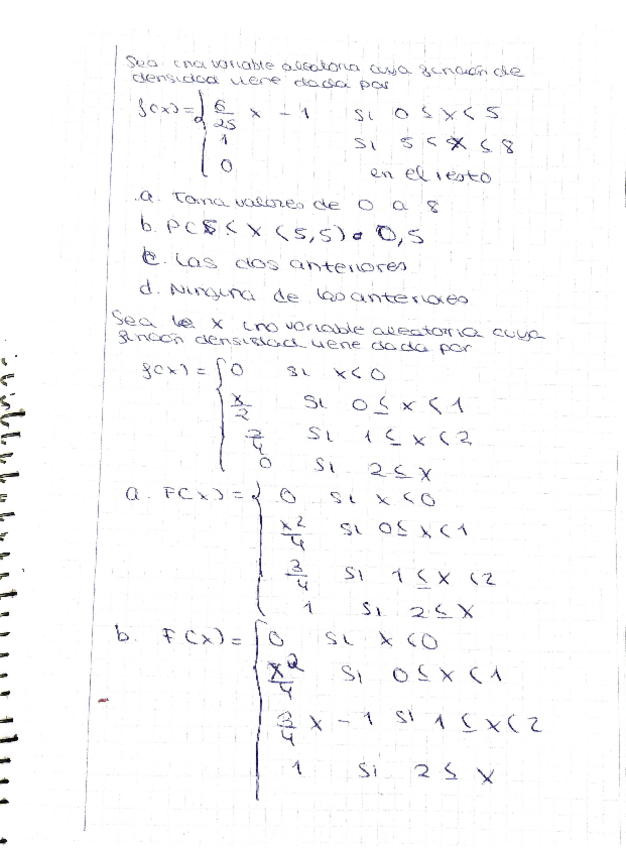 Sea una variable aleatoria cuya función de
densidad viene dada por
f(x) = { 6/25 x - 1 si 0 ≤ x < 5
1 si 5 < x ≤ 8
0 en el resto
a. Toma valores de 0 a 8
b. P(5 < x < 5,5) = 0,5
c. Las dos anteriores
d. Ninguna de las anteriores
Sea x una variable aleatoria cuya
función densidad viene dada por
f(x) = { 0 si x < 0
x/2 si 0 ≤ x < 1
3/4 si 1 ≤ x < 2
0 si 2 ≤ x
a. F(x) = { 0 si x < 0
x²/4 si 0 ≤ x < 1
3/4 si 1 ≤ x < 2
1 si 2 ≤ x
b. F(x) = { 0 si x < 0
x²/4 si 0 ≤ x < 1
3/4 x - 1 si 1 ≤ x < 2
1 si 2 ≤ x